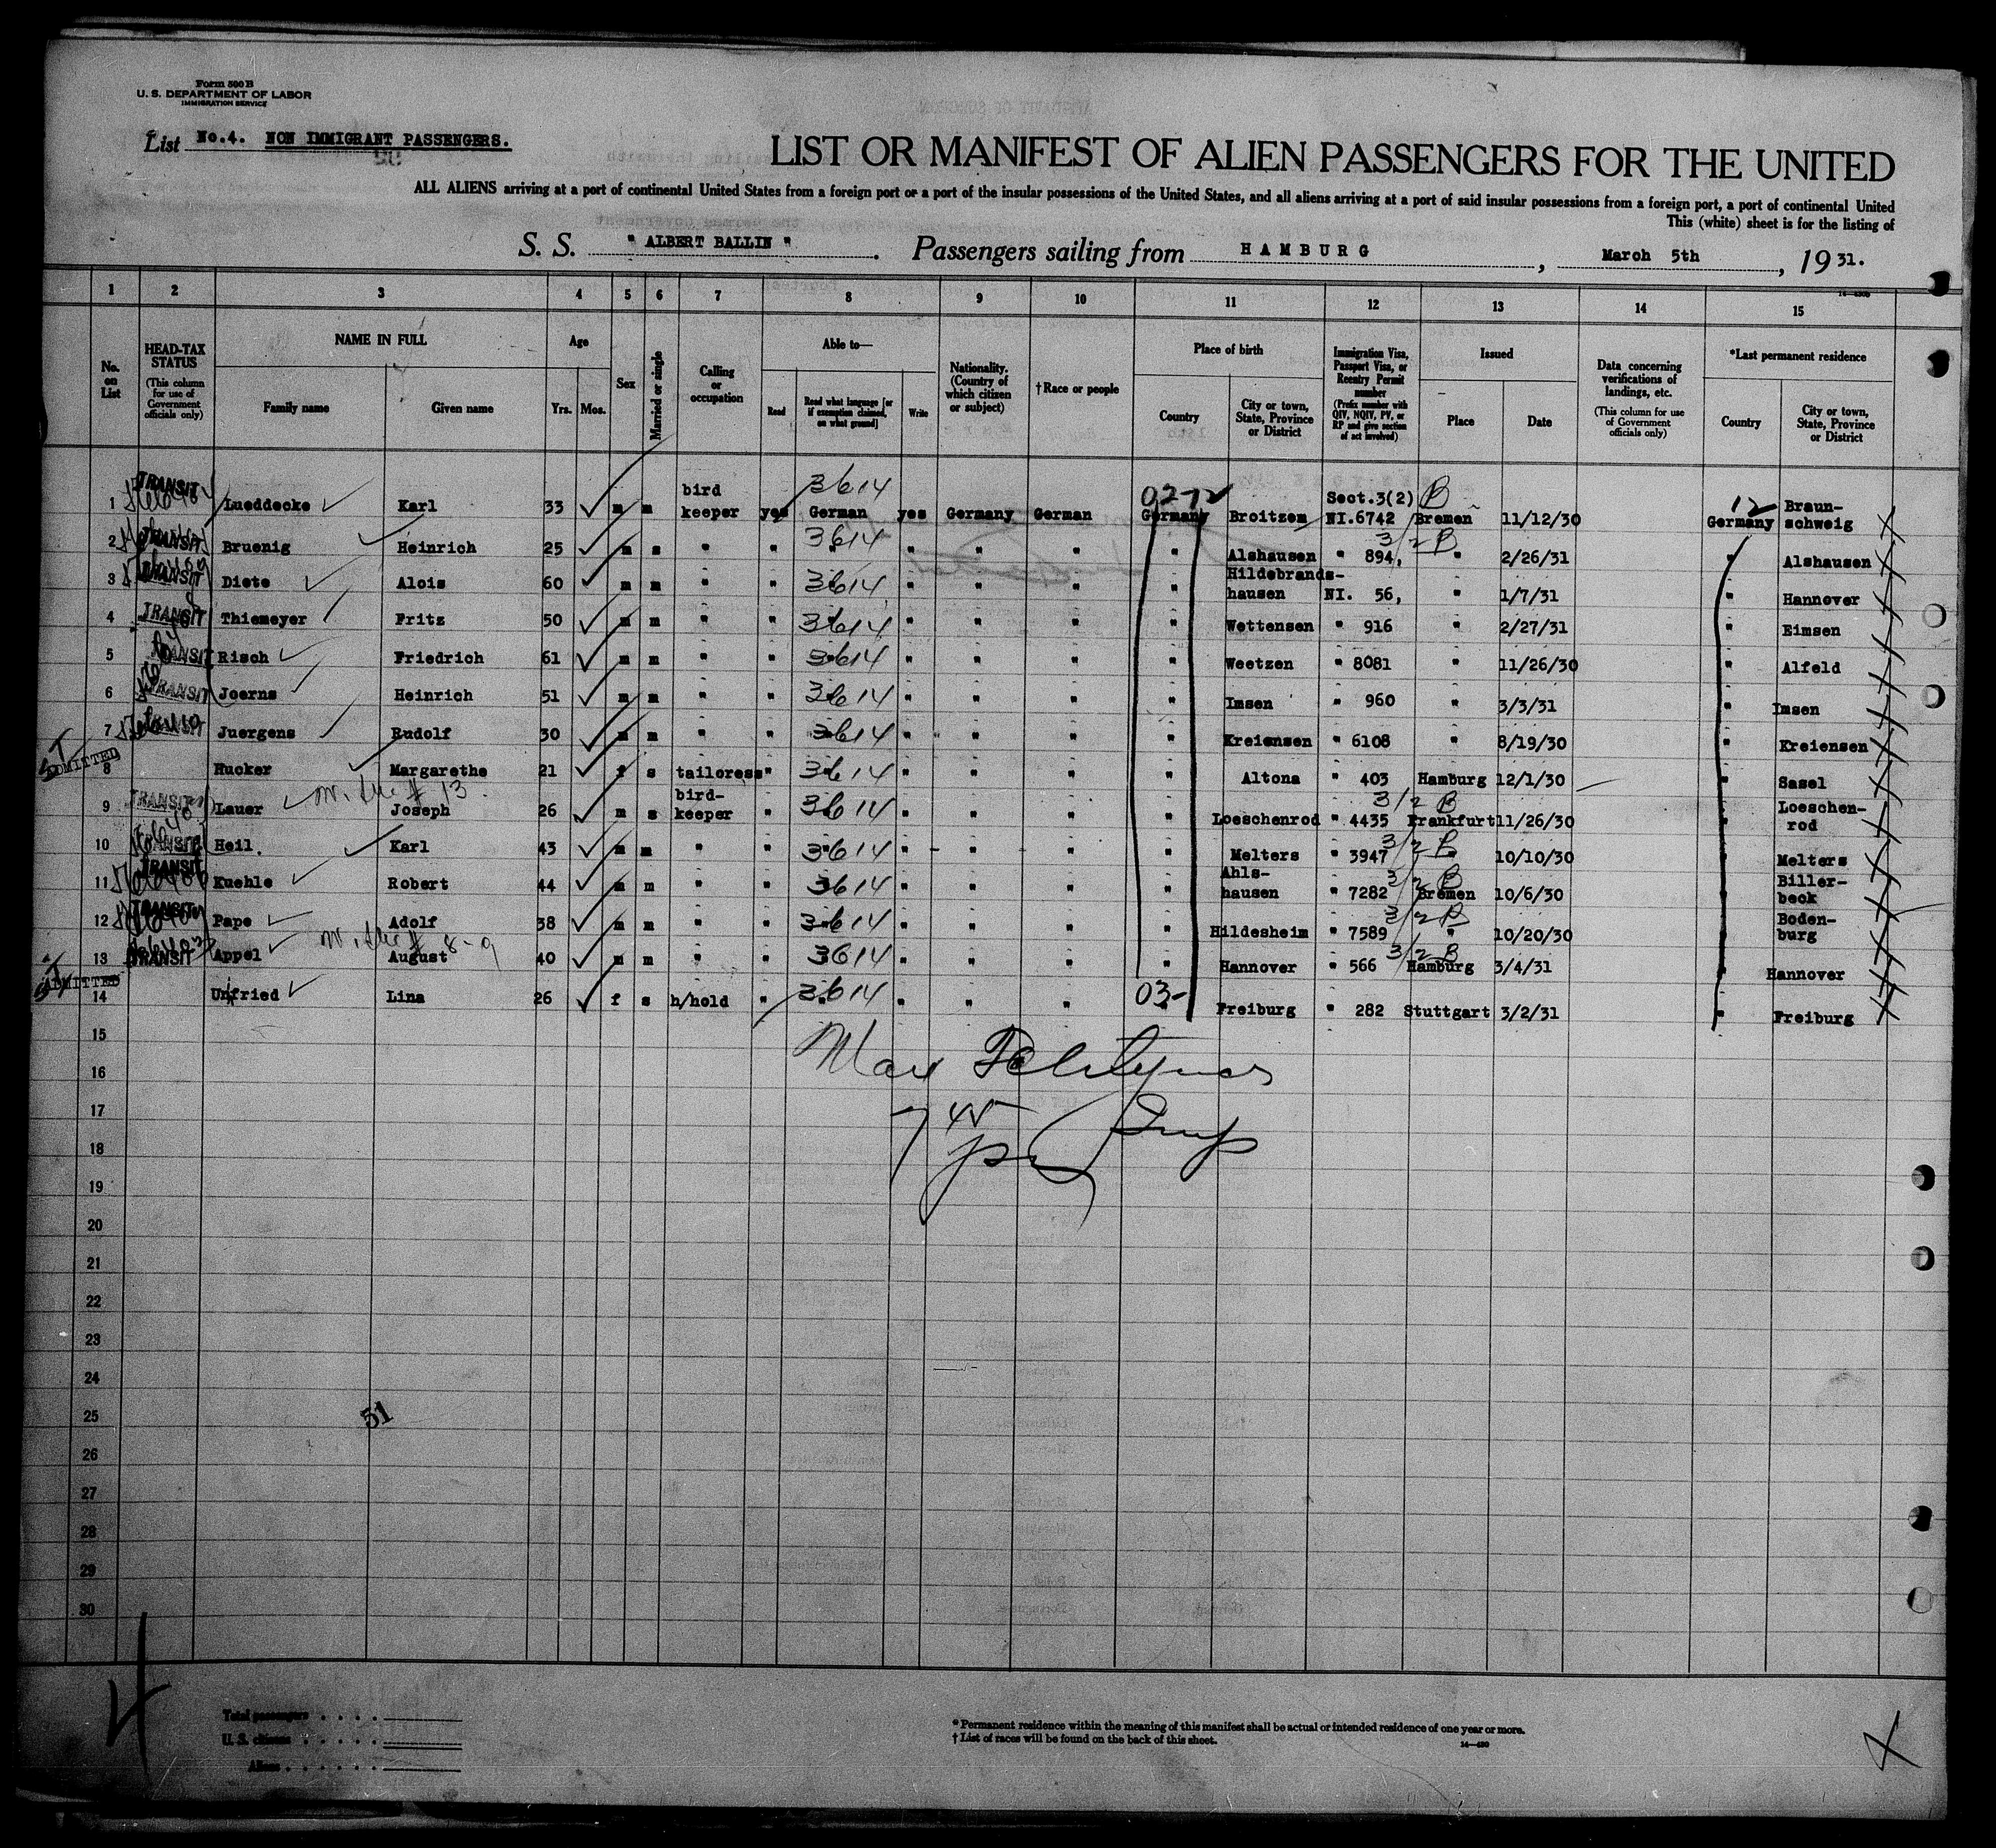 Form 500 B
U. S. DEPARTMENT OF LABOR
IMMIGRATION SERVICE
List No.4. NON IMMIGRANT PASSENGERS.
LIST OR MANIFEST OF ALIEN PASSENGERS FOR THE UNITED
ALL ALIENS arriving at a port of continental United States from a foreign port or a port of the insular possessions of the United States, and all aliens arriving at a port of said insular possessions from a foreign port, a port of continental United
This (white) sheet is for the listing of
S. S. " ALBERT BALLIN " . Passengers sailing from HAMBURG , March 5th , 19 31.
1 2 3 4 5 6 7 8 9 10 11 12 13 14 15
No. on List
HEAD-TAX STATUS
(This column for use of Government officials only)
NAME IN FULL
Family name Given name
Age
Yrs. Mos.
Sex
Married or single
Calling or occupation
Able to—
Read
Read what language [or if exemption claimed, on what ground]
Write
Nationality. (Country of which citizen or subject)
†Race or people
Place of birth
Country
City or town, State, Province or District
Immigration Visa, Passport Visa, or Reentry Permit number
(Prefix number with QIV, NQIV, PV, or RP and give section of act involved)
Issued
Place Date
Data concerning verifications of landings, etc.
(This column for use of Government officials only)
*Last permanent residence
Country
City or town, State, Province or District
1 TRANSIT Lueddecke Karl 33 m m bird keeper yes 3614 German yes Germany German 02-12 Germany Broitzem Sect.3(2) B NI.6742 Bremen 11/12/30 12 Germany Braun-schweig
2 TRANSIT Bruenig Heinrich 25 m s " " 3614 " " " " Alshausen " 894, 3/2 B " 2/26/31 " Alshausen
3 TRANSIT Diete Alois 60 m m " " 3614 " " " " Hildebrands-hausen NI. 56, " 1/7/31 " Hannover
4 TRANSIT Thiemeyer Fritz 50 m m " " 3614 " " " " Wettensen " 916 " 2/27/31 " Eimsen
5 TRANSIT Risch Friedrich 61 m m " " 3614 " " " " Weetzen " 8081 " 11/26/30 " Alfeld
6 TRANSIT Joerns Heinrich 51 m m " " 3614 " " " " Imsen " 960 " 3/3/31 " Imsen
7 TRANSIT Juergens Rudolf 30 m m " " 3614 " " " " Kreiensen " 6108 " 8/19/30 " Kreiensen
8 ADMITTED Hucker Margarethe 21 f s tailoress " 3614 " " " " Altona " 403 Hamburg 12/1/30 " Sasel
9 TRANSIT Lauer Joseph 26 m s bird-keeper " 3614 " " " " Loeschenrod " 4435 3/2 B Frankfurt 11/26/30 " Loeschen-rod
10 TRANSIT Heil. Karl 43 m m " " 3614 " " " " Melters " 3947 3/2 B " 10/10/30 " Melters
11 TRANSIT Kuehle Robert 44 m m " " 3614 " " " " Ahls-hausen " 7282 3/2 B Bremen 10/6/30 " Biller-beck
12 TRANSIT Pape Adolf 38 m m " " 3614 " " " " Hildesheim " 7589 3/2 B " 10/20/30 " Boden-burg
13 TRANSIT Appel August 40 m m " " 3614 " " " " Hannover " 566 3/2 B Hamburg 3/4/31 " Hannover
14 ADMITTED Unfried Lina 26 f s h/hold " 3614 " " " 03- " Freiburg " 282 Stuttgart 3/2/31 " Freiburg
15
16
17
18
19
20
21
22
23
24
25
51
26
27
28
29
30
4
Total passengers
U. S. citizens
Aliens
* Permanent residence within the meaning of this manifest shall be actual or intended residence of one year or more.
† List of races will be found on the back of this sheet.